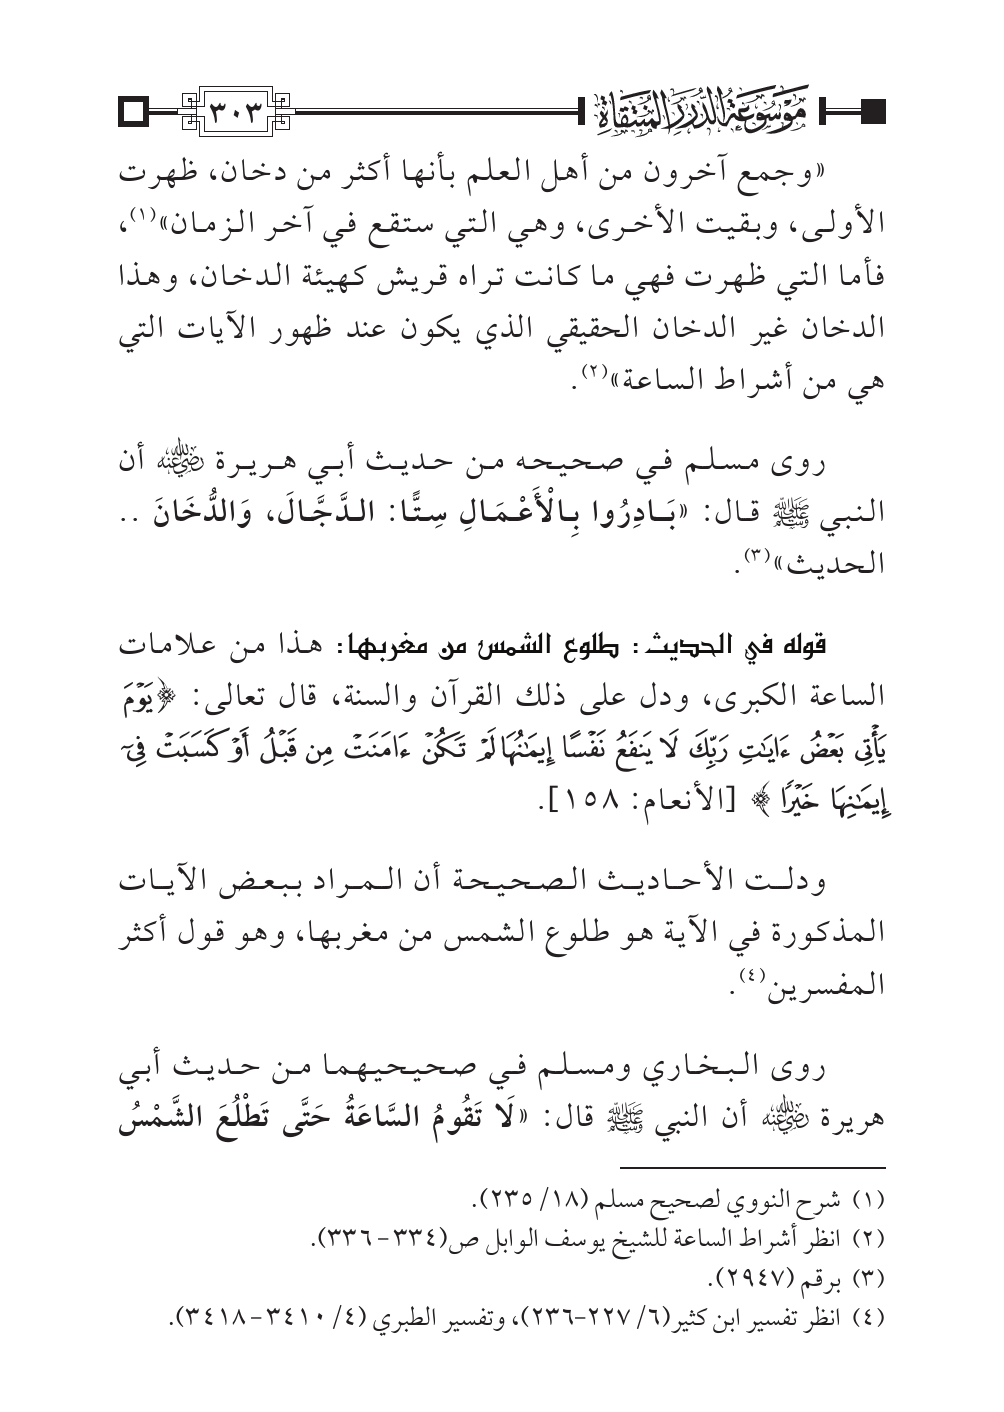 موسوعة الدرر المنتقاة
٣٠٣
«وجمع آخرون من أهل العلم بأنها أكثر من دخان، ظهرت
الأولى، وبقيت الأخرى، وهي التي ستقع في آخر الزمان»(١)،
فأما التي ظهرت فهي ما كانت تراه قريش كهيئة الدخان، وهذا
الدخان غير الدخان الحقيقي الذي يكون عند ظهور الآيات التي
هي من أشراط الساعة»(٢).
روى مسلم في صحيحه من حديث أبي هريرة رضي الله عنه أن
النبي ﷺ قال: «بَادِرُوا بِالْأَعْمَالِ سِتًّا: الدَّجَّالَ، وَالدُّخَانَ ..
الحديث»(٣).
قوله في الحديث: طلوع الشمس من مغربها: هذا من علامات
الساعة الكبرى، ودل على ذلك القرآن والسنة، قال تعالى: ﴿يَوْمَ
يَأْتِي بَعْضُ ءَايَٰتِ رَبِّكَ لَا يَنفَعُ نَفْسًا إِيمَٰنُهَا لَمْ تَكُنْ ءَامَنَتْ مِن قَبْلُ أَوْ كَسَبَتْ فِىٓ
إِيمَٰنِهَا خَيْرًا﴾ [الأنعام: ١٥٨].
ودلت الأحاديث الصحيحة أن المراد ببعض الآيات
المذكورة في الآية هو طلوع الشمس من مغربها، وهو قول أكثر
المفسرين(٤).
روى البخاري ومسلم في صحيحيهما من حديث أبي
هريرة رضي الله عنه أن النبي ﷺ قال: «لَا تَقُومُ السَّاعَةُ حَتَّى تَطْلُعَ الشَّمْسُ
(١) شرح النووي لصحيح مسلم (١٨/ ٢٣٥).
(٢) انظر أشراط الساعة للشيخ يوسف الوابل ص(٣٣٤-٣٣٦).
(٣) برقم (٢٩٤٧).
(٤) انظر تفسير ابن كثير(٦/ ٢٢٧-٢٣٦)، وتفسير الطبري (٤/ ٣٤١٠-٣٤١٨).